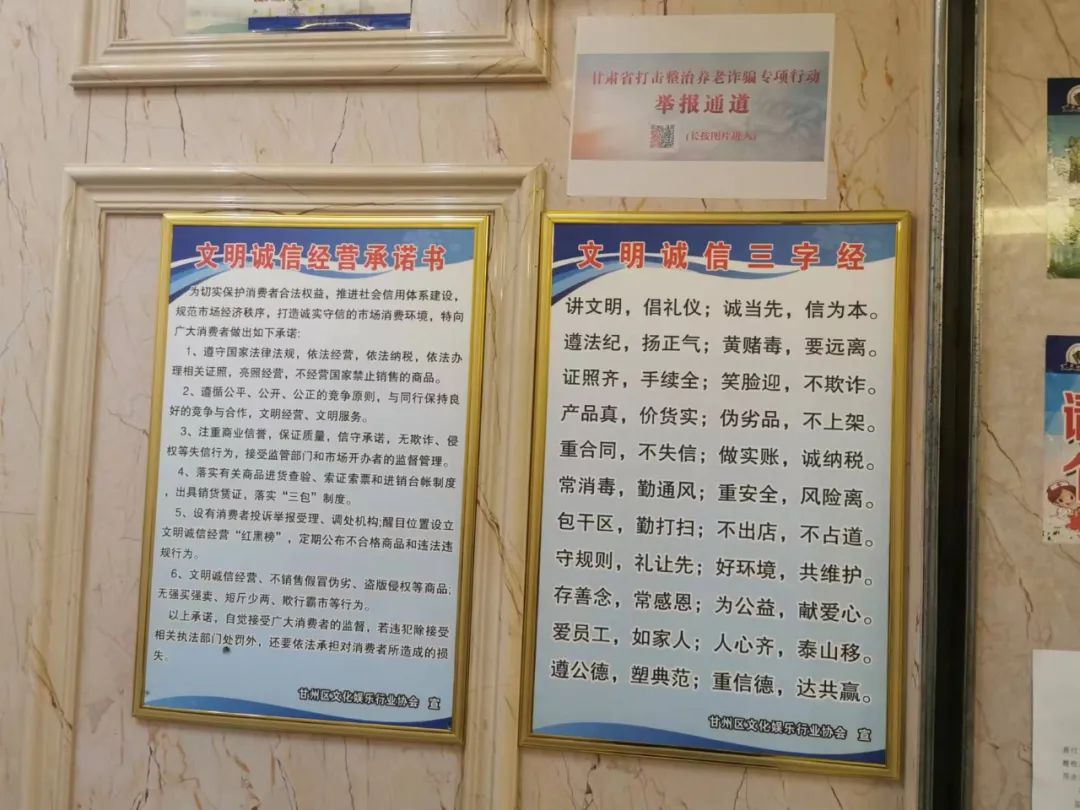 甘肃省打击整治养老诈骗专项行动
举报通道
(长按图片进入)
文明诚信经营承诺书
为切实保护消费者合法权益，推进社会信用体系建设，
规范市场经济秩序，打造诚实守信的市场消费环境，特向
广大消费者做出如下承诺:
1、遵守国家法律法规，依法经营，依法纳税，依法办
理相关证照，亮照经营，不经营国家禁止销售的商品。
2、遵循公平、公开、公正的竞争原则，与同行保持良
好的竞争与合作，文明经营、文明服务。
3、注重商业信誉，保证质量，信守承诺，无欺诈、侵
权等失信行为，接受监管部门和市场开办者的监督管理。
4、落实有关商品进货查验、索证索票和进销台帐制度
，出具销货凭证，落实“三包”制度。
5、设有消费者投诉举报受理、调处机构;醒目位置设立
文明诚信经营“红黑榜”，定期公布不合格商品和违法违
规行为。
6、文明诚信经营、不销售假冒伪劣、盗版侵权等商品;
无强买强卖、短斤少两、欺行霸市等行为。
以上承诺，自觉接受广大消费者的监督，若违犯除接受
相关执法部门处罚外，还要依法承担对消费者所造成的损
失。
甘州区文化娱乐行业协会 宣
文明诚信三字经
讲文明，倡礼仪；诚当先，信为本。
遵法纪，扬正气；黄赌毒，要远离。
证照齐，手续全；笑脸迎，不欺诈。
产品真，价货实；伪劣品，不上架。
重合同，不失信；做实账，诚纳税。
常消毒，勤通风；重安全，风险离。
包干区，勤打扫；不出店，不占道。
守规则，礼让先；好环境，共维护。
存善念，常感恩；为公益，献爱心。
爱员工，如家人；人心齐，泰山移。
遵公德，塑典范；重信德，达共赢。
甘州区文化娱乐行业协会 宣